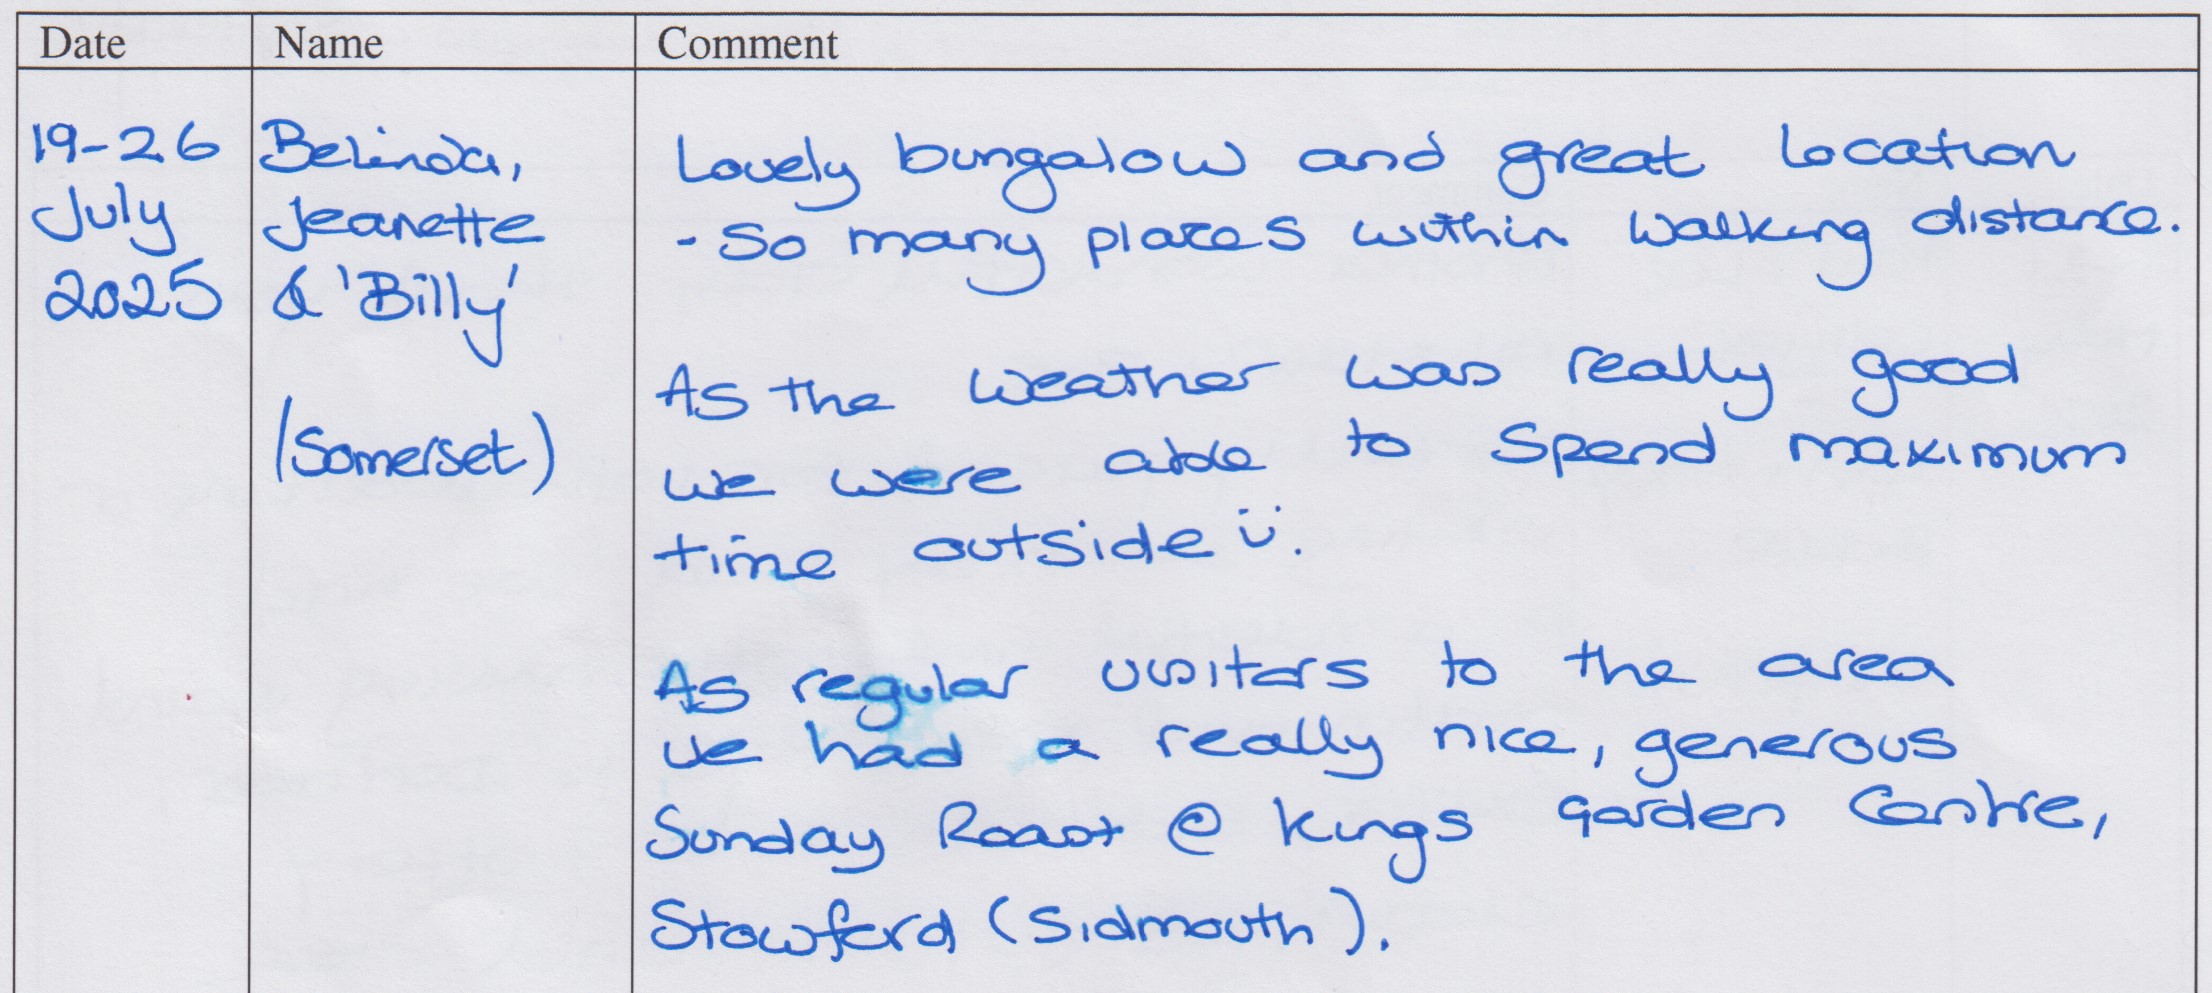 Date Name Comment
19-26 July 2025
Belinda,
Jeanette
& 'Billy'
(Somerset)
Lovely bungalow and great location
- So many places within walking distance.
As the weather was really good
we were able to spend maximum
time outside ü.
As regular visitors to the area
we had a really nice, generous
Sunday Roast @ Kings Garden Centre,
Stowford (Sidmouth).